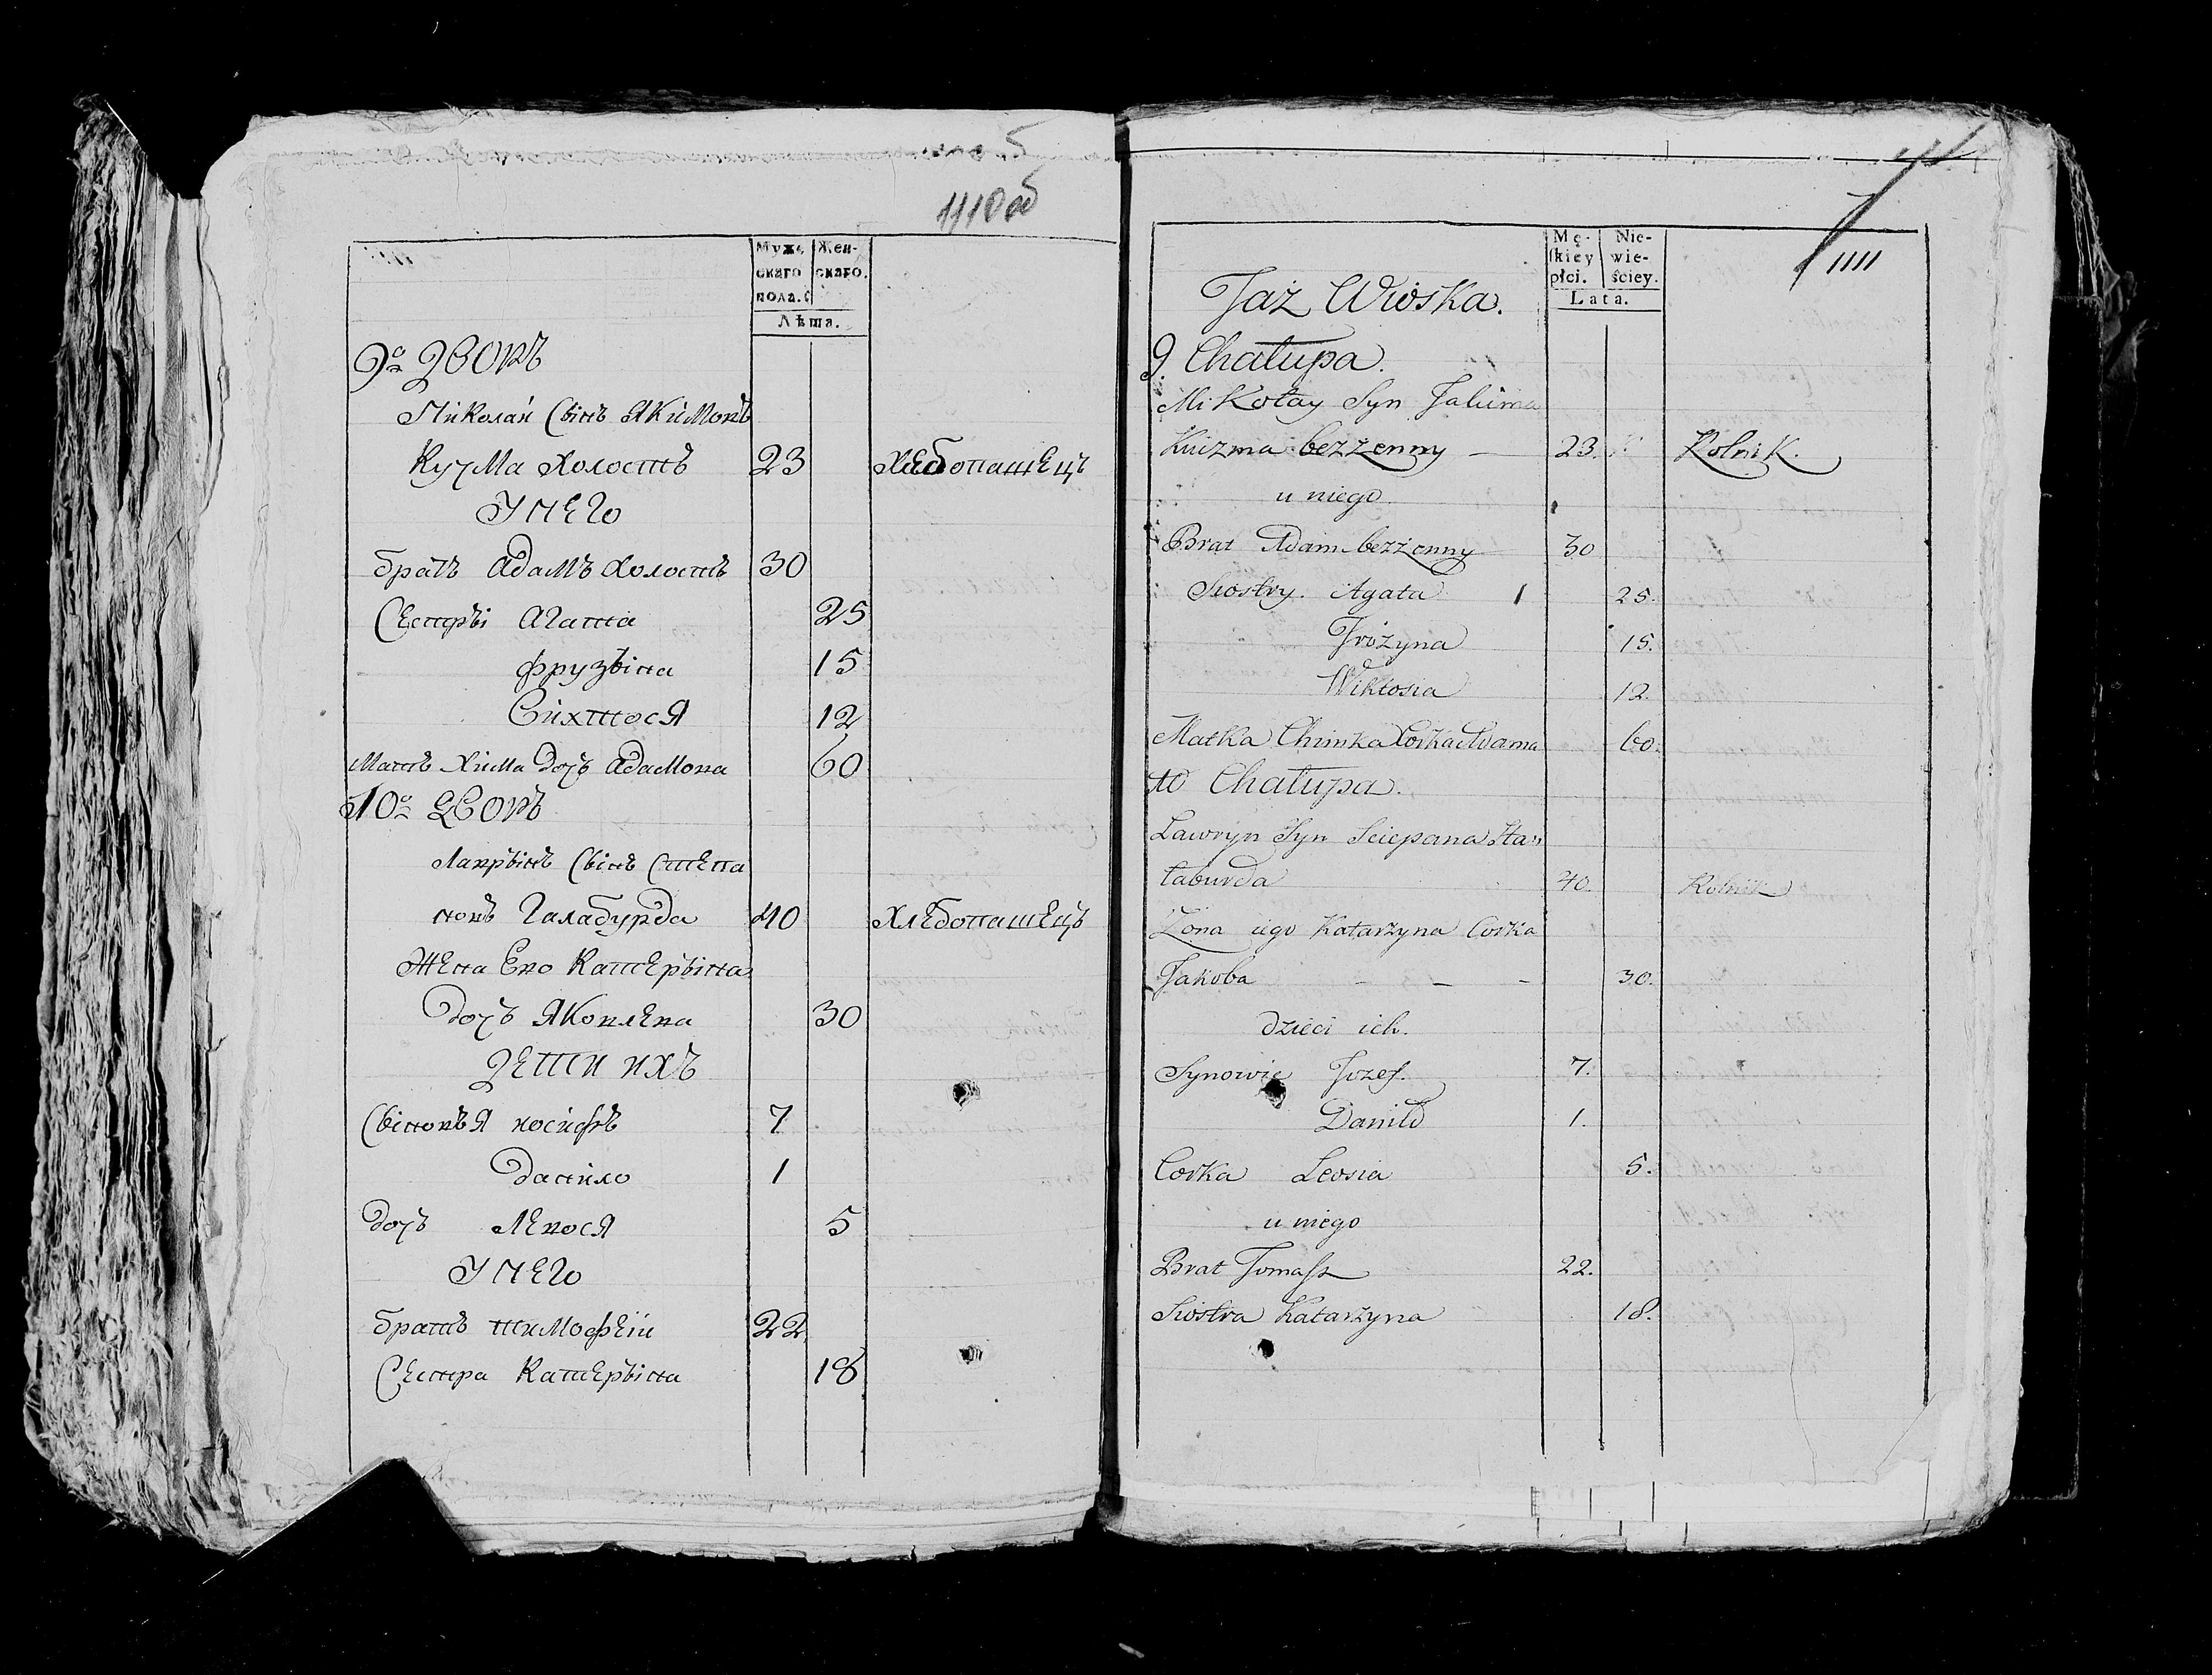 1110 об
Муже
скаго
пола.
Жен-
скаго.
Лѣта.
9º ДВОРЪ
Николай Сынъ Якимовъ
Кузма Холостъ 23 Хлебопашецъ
У НЕГО
братъ Адамъ Холостъ 30
Сестры Агата 25
Фрузына 15
Вихтося 12
Мать Хима дочь Адамова 60
10º ДВОРЪ
Лаврынъ Сынъ Степа
новъ Галабурда 40 Хлебопашецъ
Жена Ево Катерына
дочь Яковлева 30
ДЕТИ ИХЪ
Сыновья иосифъ 7
Данило 1
дочь Левося 5
У НЕГО
братъ тимофеiй 22
Сестра Катерына 18
1111
Mę-
skiey
płci.
Nie-
wie-
ściey.
Lata.
Taż Wioska.
9. Chałupa.
Mikołay Syn Jakima
Kuizma bezżenny — 23. Rolnik.
u niego
Brat Adam bezżenny 30
Siostry. Agata 25.
Frożyna 15.
Wiktosia 12.
Matka Chimka Corka Adama 60.
10 Chałupa.
Ławryn Syn Sciepana Ha„
łaburda 40. Rolnik
Zona iego Katarzyna Corka
Jakoba — — — 30.
dzieci ich.
Synowie Jozef. 7.
Daniło 1.
Corka Leosia 5.
u niego
Brat Tomasz 22.
Siostra Katarzyna 18.